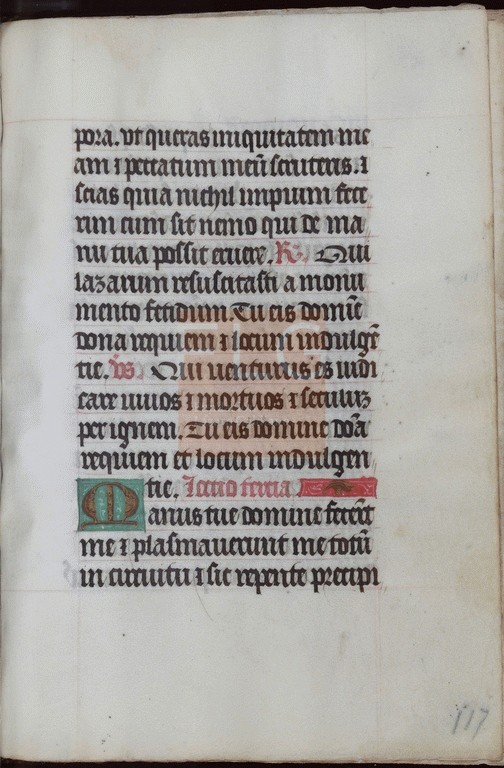 pora. vt queras iniquitatem me
am ⁊ peccatum meū scruteris. ⁊
scias quia nichil impium fece
rim cum sit nemo qui de ma
nu tua possit eruere. R̃. Qui
lazarum resuscitasti a monu
mento fetidum. Tu eis domīe
dona requiem ⁊ locum indulgē
tie. v̄s. Qui uenturus es iudi
care uiuos ⁊ mortuos ⁊ seculuꝫ
per ignem. Tu eis domine dōa
requiem et locum indulgen
tie. Lectio tercia.
Manus tue domine fecer̄t
me ⁊ plasmauerunt me totū
in circuitu ⁊ sic repente precipi
117